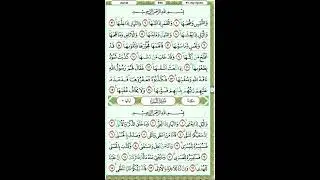 بِسْمِ اللَّهِ الرَّحْمَٰنِ الرَّحِيمِ
وَالشَّمْسِ وَضُحَاهَا ١ وَالْقَمَرِ إِذَا تَلَاهَا ٢ وَالنَّهَارِ إِذَا جَلَّاهَا ٣
وَاللَّيْلِ إِذَا يَغْشَاهَا ٤ وَالسَّمَاءِ وَمَا بَنَاهَا ٥ وَالْأَرْضِ وَمَا طَحَاهَا ٦
وَنَفْسٍ وَمَا سَوَّاهَا ٧ فَأَلْهَمَهَا فُجُورَهَا وَتَقْوَاهَا ٨ قَدْ أَفْلَحَ مَنْ زَكَّاهَا ٩
وَقَدْ خَابَ مَنْ دَسَّاهَا ١٠ كَذَّبَتْ ثَمُودُ بِطَغْوَاهَا ١١ إِذِ انْبَعَثَ أَشْقَاهَا ١٢
فَقَالَ لَهُمْ رَسُولُ اللَّهِ نَاقَةَ اللَّهِ وَسُقْيَاهَا ١٣ فَكَذَّبُوهُ فَعَقَرُوهَا فَدَمْدَمَ
عَلَيْهِمْ رَبُّهُمْ بِذَنْبِهِمْ فَسَوَّاهَا ١٤ وَلَا يَخَافُ عُقْبَاهَا ١٥
بِسْمِ اللَّهِ الرَّحْمَٰنِ الرَّحِيمِ
وَاللَّيْلِ إِذَا يَغْشَىٰ ١ وَالنَّهَارِ إِذَا تَجَلَّىٰ ٢ وَمَا خَلَقَ الذَّكَرَ وَالْأُنْثَىٰ ٣
إِنَّ سَعْيَكُمْ لَشَتَّىٰ ٤ فَأَمَّا مَنْ أَعْطَىٰ وَاتَّقَىٰ ٥ وَصَدَّقَ بِالْحُسْنَىٰ ٦
فَسَنُيَسِّرُهُ لِلْيُسْرَىٰ ٧ وَأَمَّا مَنْ بَخِلَ وَاسْتَغْنَىٰ ٨ وَكَذَّبَ بِالْحُسْنَىٰ ٩
فَسَنُيَسِّرُهُ لِلْعُسْرَىٰ ١٠ وَمَا يُغْنِي عَنْهُ مَالُهُ إِذَا تَرَدَّىٰ ١١ إِنَّ عَلَيْنَا
لَلْهُدَىٰ ١٢ وَإِنَّ لَنَا لَلْآخِرَةَ وَالْأُولَىٰ ١٣